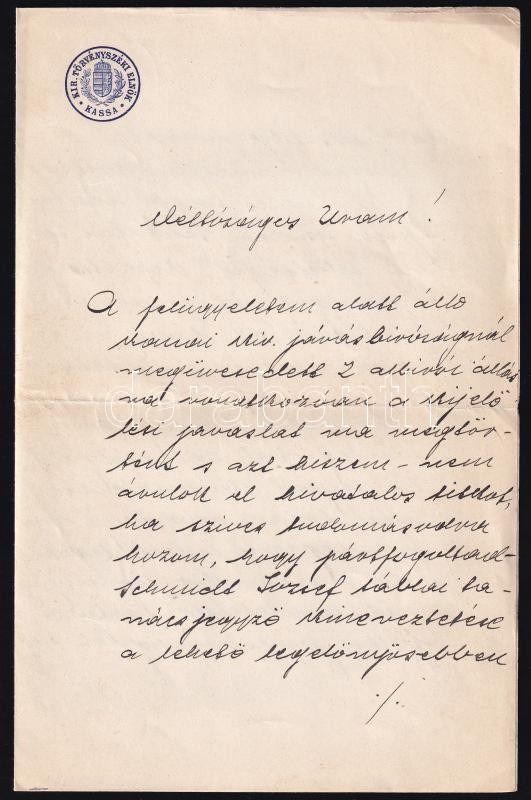 KIR. TÖRVÉNYSZÉKI ELNÖK
KASSA
Méltóságos Uram!
A felügyeletem alatt álló
kassai kir. járásbiróságnál
megüresedett 2 albirói állás
ra vonatkozóan a kijelö
lési javaslat ma megtör-
tént s azt hiszem - nem
árulok el hivatalos titkot,
ha szives tudomásodra
hozom, hogy pártfogoltad -
Schmidt József táblai ta-
nácsjegyző kineveztetése
a lehető legelőnyösebben
./.
darabanth